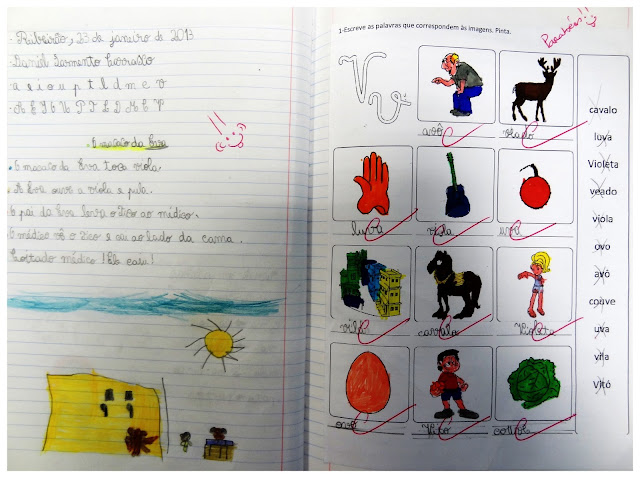 Ribeirão, 23 de janeiro de 2013
Daniel Sarmento
a e i o u p t l d m c v
A E I O U P T L D M C V
O macaco da Eva
O macaco da Eva toca viola.
A Eva ouve a viola e pula.
O pai da Eva leva o Tico ao médico.
O médico vê o Tico e cai ao lado da cama.
Coitado médico! Ele caiu!
1-Escreve as palavras que correspondem às imagens. Pinta.
Parabéns!!
V v
avô
viado
luva
viola
uva
vila
cavalo
Violeta
ovo
Vitó
couve
cavalo
luva
Violeta
veado
viola
ovo
avô
couve
uva
vila
Vitó